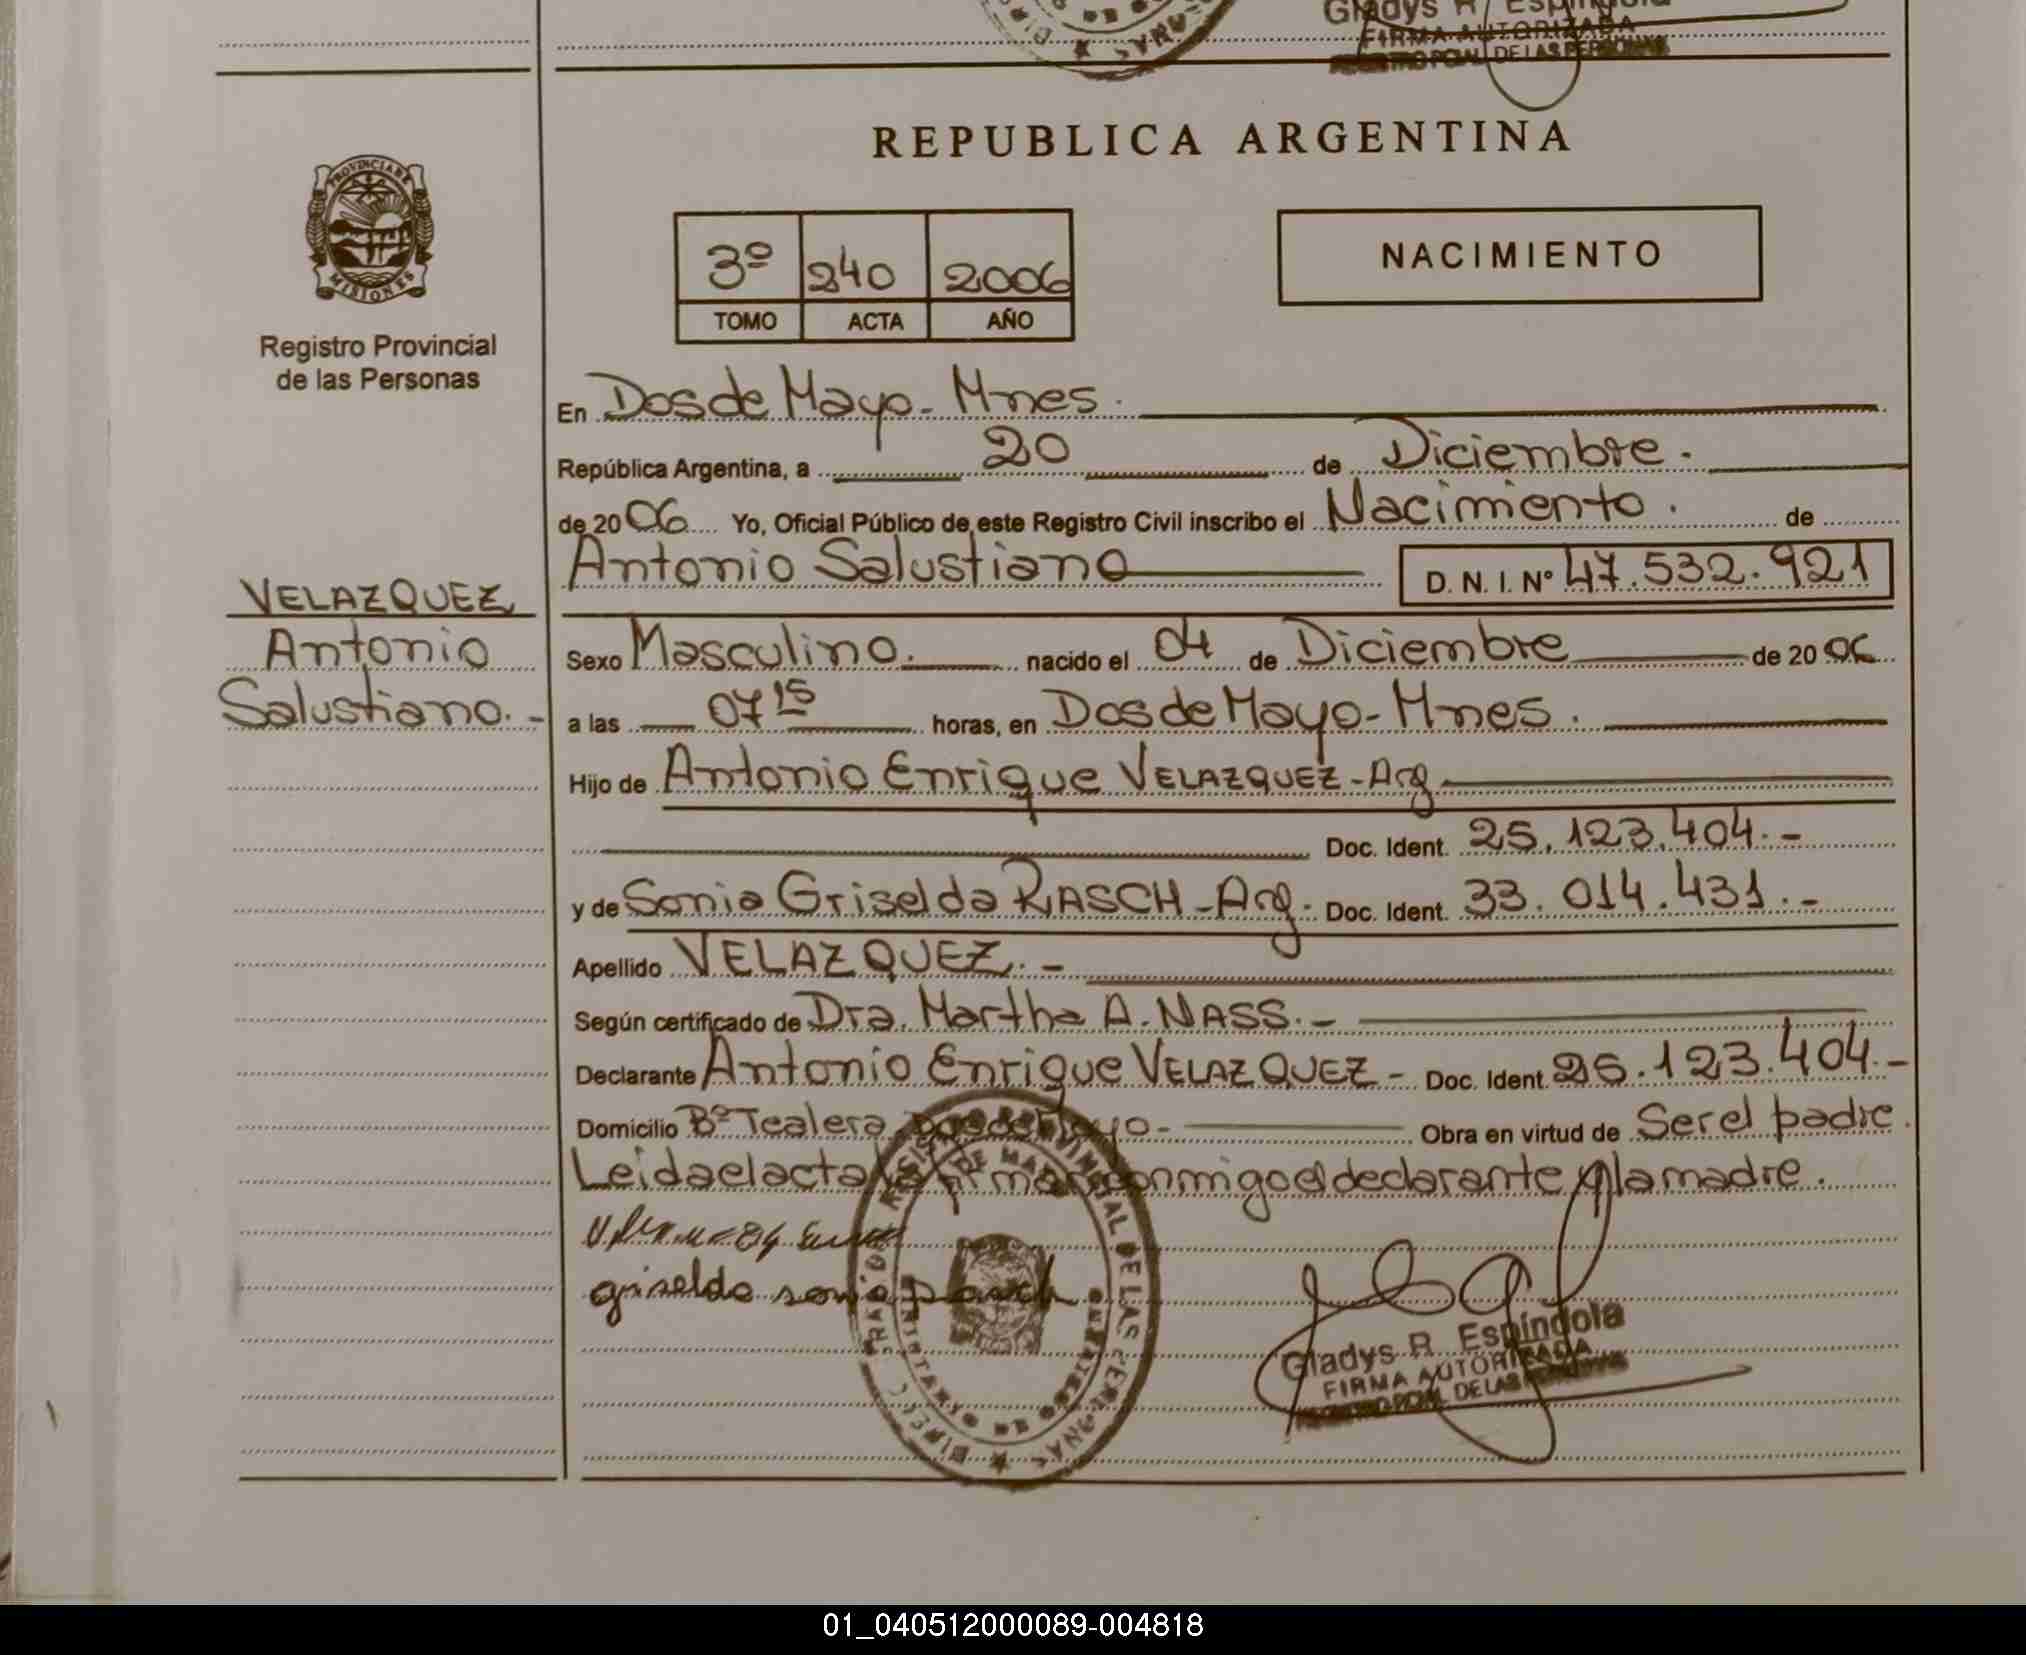 Gladys R. Espindola
FIRMA AUTORIZADA
DE LAS PERSONAS
REPUBLICA ARGENTINA
PROVINCIA DE
MISIONES
Registro Provincial
de las Personas
3º 240 2006
TOMO ACTA AÑO
NACIMIENTO
En Dos de Mayo - Mnes.
República Argentina, a 20 de Diciembre.
de 2006 Yo, Oficial Público de este Registro Civil inscribo el Nacimiento. de
Antonio Salustiano D. N. I. Nº 47.532.921
VELAZQUEZ
Antonio
Salustiano.-
Sexo Masculino. nacido el 04 de Diciembre de 2006
a las 07 15 horas, en Dos de Mayo - Mnes.
Hijo de Antonio Enrique VELAZQUEZ - Arg
Doc. Ident. 25.123.404.-
y de Sonia Griselda RASCH - Arg. Doc. Ident. 33.014.431.-
Apellido VELAZQUEZ.-
Según certificado de Dra. Martha A. NASS.-
Declarante Antonio Enrique VELAZQUEZ - Doc. Ident. 25.123.404.-
Domicilio Bº Tealera Dos de Mayo- Obra en virtud de Ser el padre.
Leida el acta la firman conmigo el declarante y la madre.
griselda sonia Rasch
Gladys R. Espindola
FIRMA AUTORIZADA
DE LAS
01_040512000089-004818